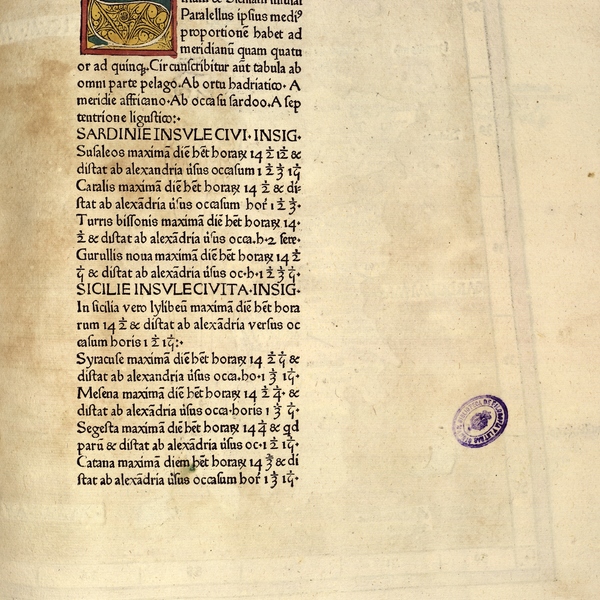 Paralellus ipsius medi⁹
proportionē habet ad
meridianū quam quatu
or ad quinqꝫ. Circunscribitur aūt tabula ab
omni parte pelago. Ab ortu hadriatico. A
meridie affricano. Ab occasu sardoo. A sep
tentrione ligustico:·
SARDINIE INSVLE CIVI· INSIG·
Susaleos maximā diē hēt horaꝝ 14 ½ 1̅2 &
distat ab alexandria ūsus occasum 1 ½ ⅓
Caralis maximā diē hēt horaꝝ 14 ½ & di-
stat ab alexādria ūsus occasum hor̄ 1 ½ ⅓·
Turris bissonis maximā diē hēt horaꝝ 14·
½ & distat ab alexādria ūsus occa.h·2 fere·
Gurullis noua maximā diē hēt horaꝝ 14 ½
& distat ab alexādria ūsus oc·h·1 ½ ⅓
SICILIE INSVLE CIVITA·INSIG·
In sicilia vero lylibeū maximā diē hēt hora
rum 14 ½ & distat ab alexādria versus oc
casum horis 1 ½
Syracuse maximā diē hēt horaꝝ 14 ½ &
distat ab alexandria ūsus occa.ho·1 ⅓
Mesena maximā diē hēt horaꝝ 14 ½ ¼· &
distat ab alexādria ūsus occa·horis 1 ⅓
Segesta maximā diē hēt horaꝝ 14 & qd
parū & distat ab alexādria ūsus oc·1 ½
Catana maximā diem hēt horaꝝ 14 & di
stat ab alexādria ūsus occasum hor̄ 1 ⅓